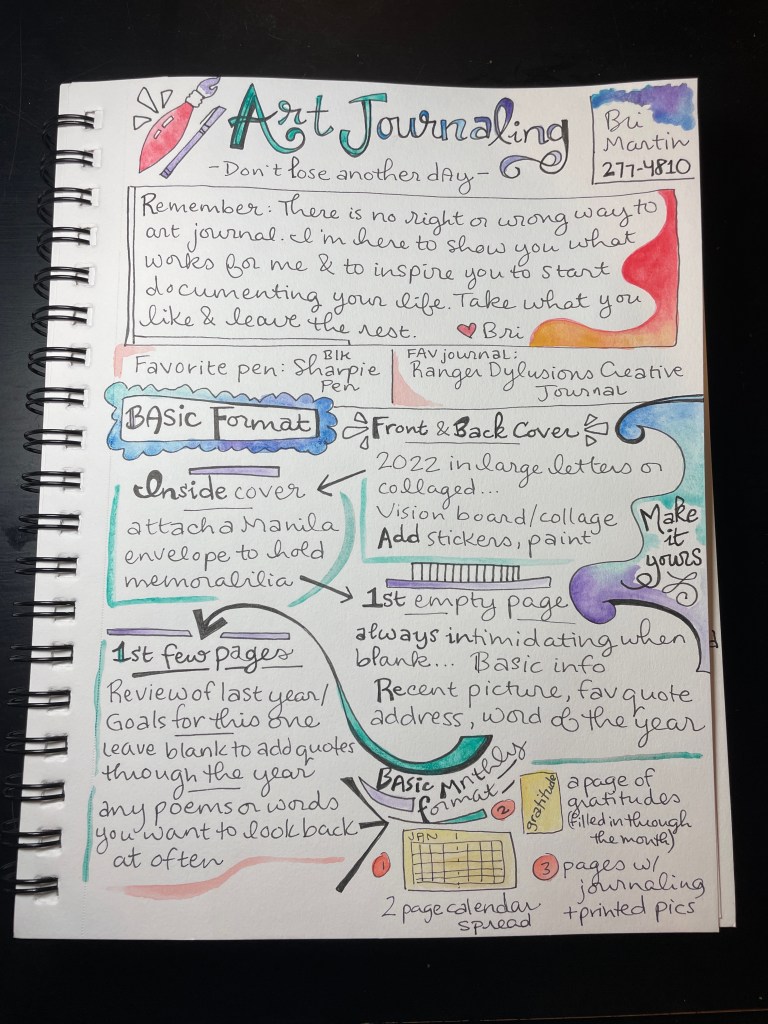 Art Journaling
- Don't lose another dAy -
Bri
Martin
277-4810
Remember: There is no right or wrong way to
art journal. I'm here to show you what
works for me & to inspire you to start
documenting your life. Take what you
like & leave the rest. ♥ Bri
Favorite pen: Sharpie
Blk
Pen
FAV journal:
Ranger Dylusions Creative
Journal
BASic Format
Front & Back Cover
2022 in large letters or
collaged...
Vision board/collage
Add stickers, paint
Make
it
yours
Inside cover
attach a Manila
envelope to hold
memorabilia
1st empty page
always intimidating when
blank... Basic info
Recent picture, fav quote
address, word of the year
1st few pages
Review of last year/
Goals for this one
leave blank to add quotes
through the year
any poems or words
you want to look back
at often
BASic Mnthly
format
1
JAN 1
2 page calendar
spread
2
gratitude
a page of
gratitudes
(filled in through
the month)
3 pages w/
journaling
+ printed pics